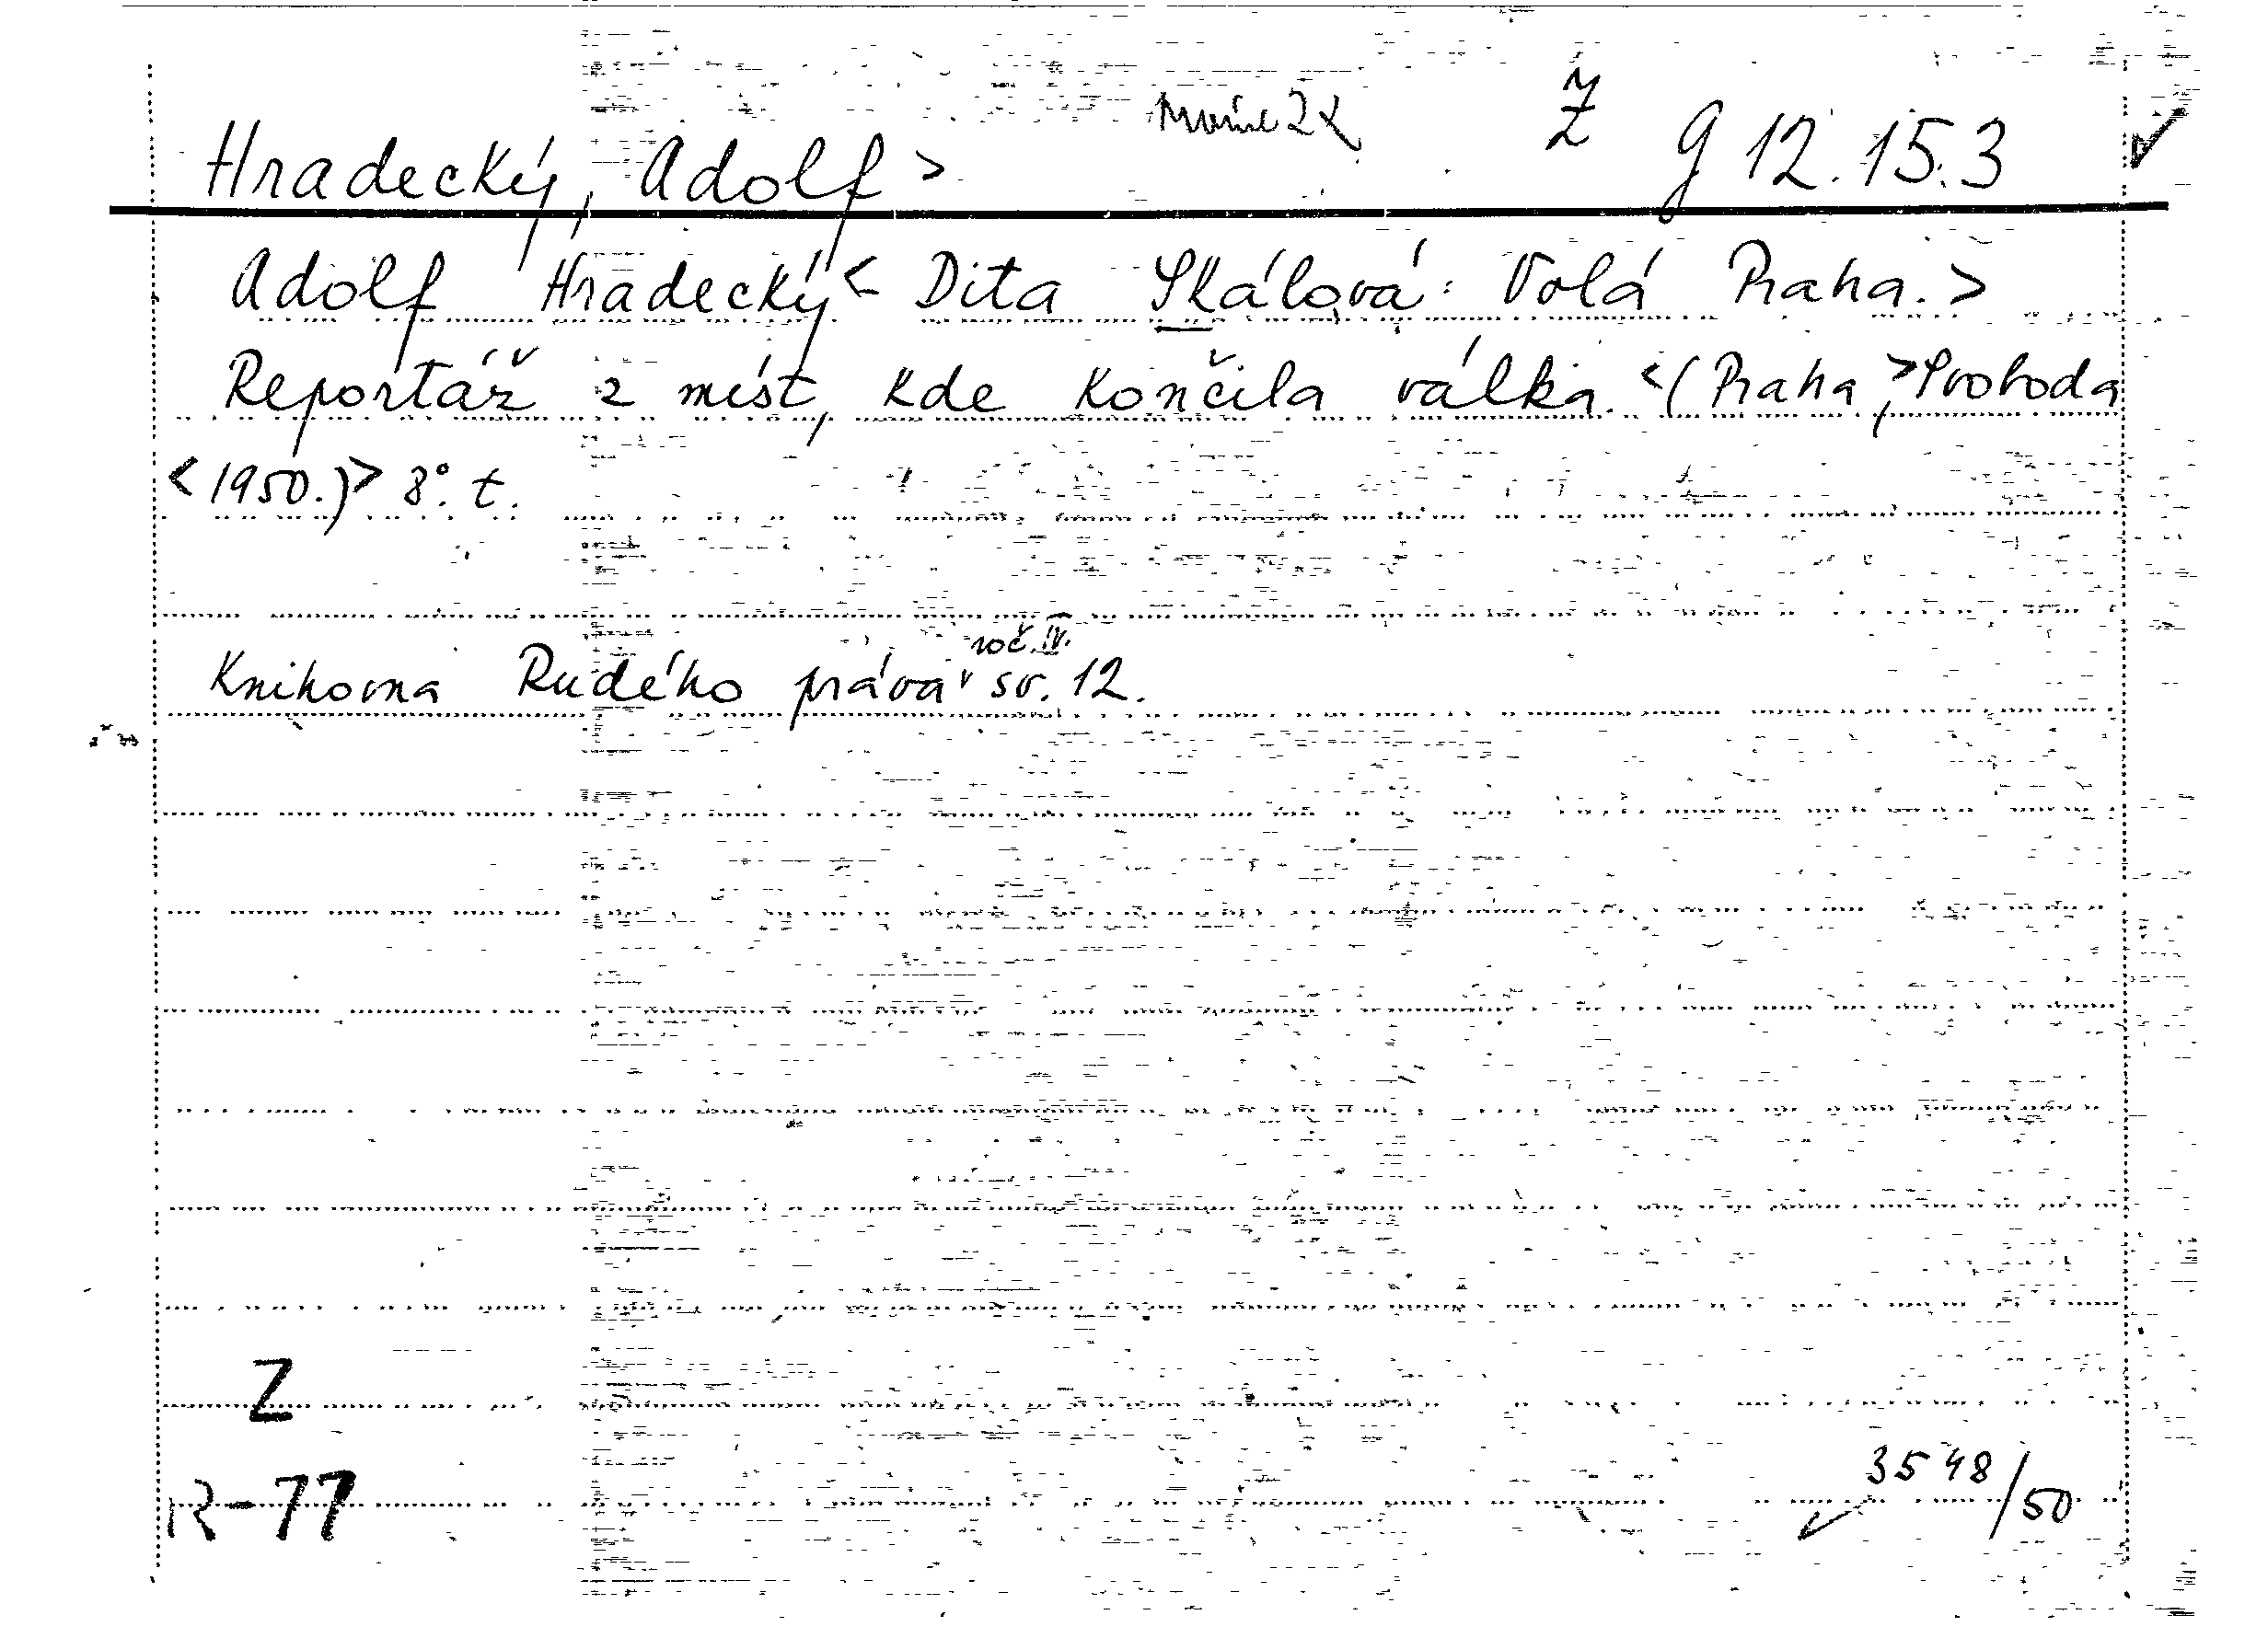 2x Ž g 12.15.3
Hradecký, Adolf >
Adolf Hradecký < Dita Skálová: Volá Praha. >
Reportáž z míst, kde končila válka. < (Praha, > Svoboda
< 1950.) > 8°. t.
roč. IV.
Knihovna Rudého práva sv. 12.
Z
R-77
3548/50